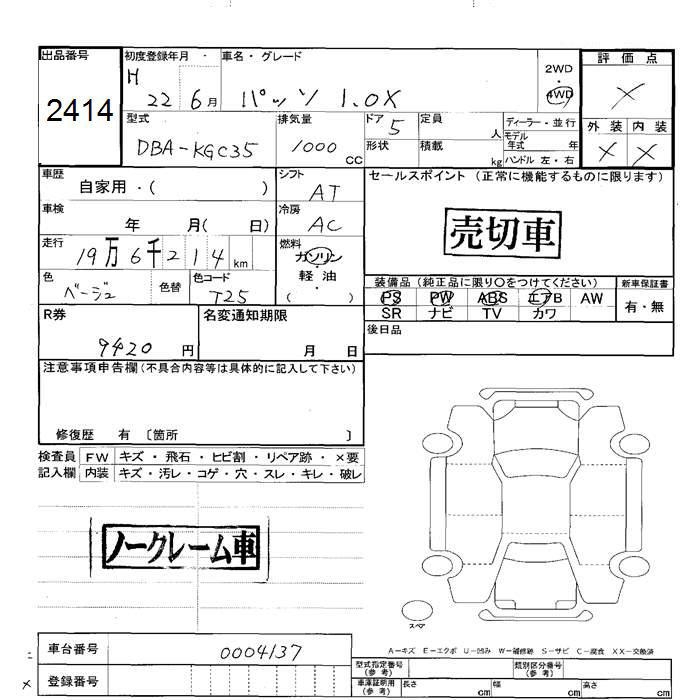 出品番号
2414
初度登録年月
H
22 6月
車名・グレード
パッソ 1.0X
2WD
4WD
評価点
X
外装 内装
X X
型式
DBA-KGC35
排気量
1000
CC
ドア 5
形状
定員
人
積載
kg
ディーラー・並行
モデル
年式 年
ハンドル 左・右
車歴
自家用・( )
シフト
AT
セールスポイント (正常に機能するものに限ります)
売切車
車検
年 月( 日)
冷房
AC
走行
19万6千214km
燃料
ガソリン
・
軽油
( )
色
ベージュ
色替
色コード
T25
装備品(純正品に限り○をつけてください)
新車保証書
PS PW ABS エアB AW
SR ナビ TV カワ
有・無
R券
9420 円
名変通知期限
月 日
後日品
注意事項申告欄(不具合内容等は具体的に記入して下さい)
修復歴 有 〔箇所 〕
検査員
記入欄
FW キズ・飛石・ヒビ割・リペア跡・×要
内装 キズ・汚レ・コゲ・穴・スレ・キレ・破レ
ノークレーム車
スペア
A-キズ E-エクボ U-凹み W-補修跡 S-サビ C-腐食 XX-交換済
車台番号
0004137
登録番号
型式指定番号
(参考)
類別区分番号
(参考)
車庫証明用
(参考)
長さ cm
幅 cm
高さ cm